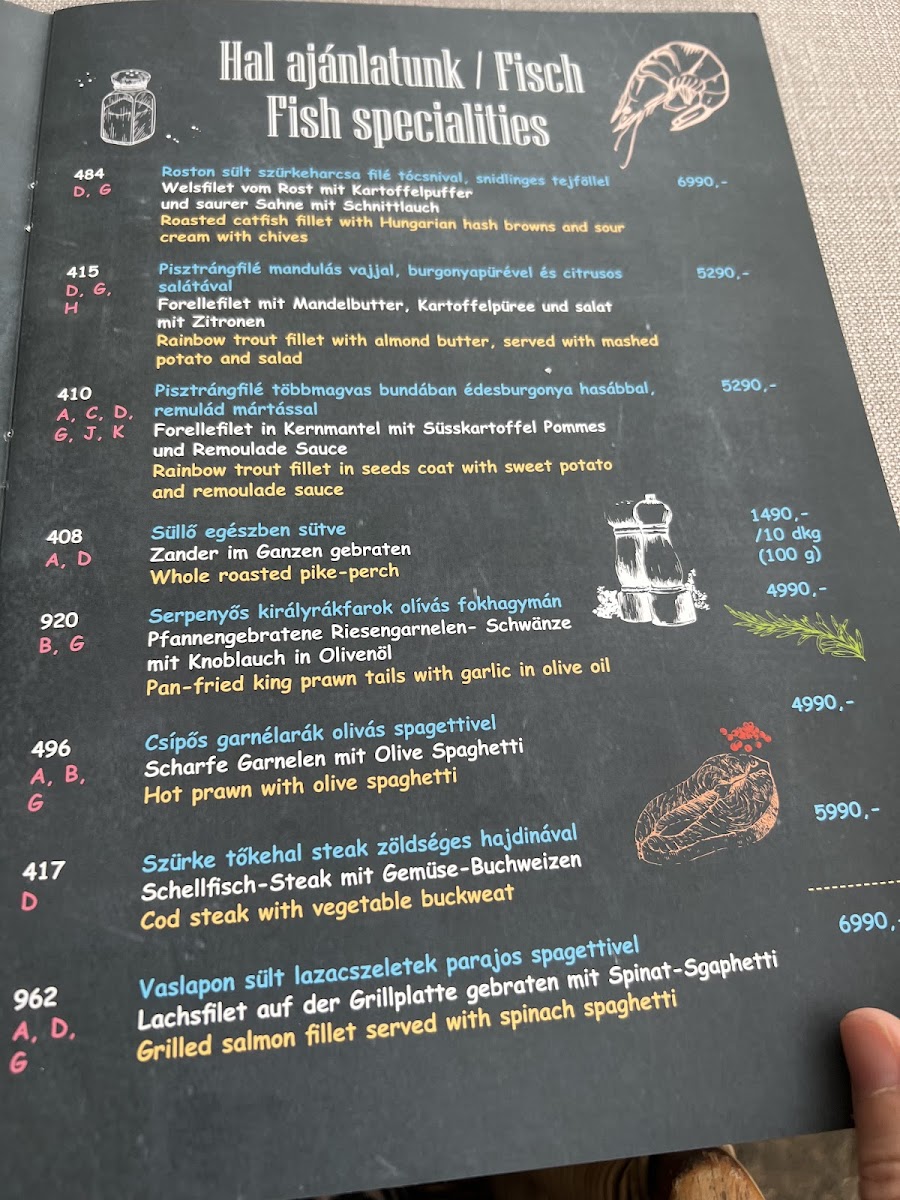 Hal ajánlatunk / Fisch
Fish specialities
484
D, G
Roston sült szürkeharcsa filé tócsnival, snidlinges tejföllel
6990,-
Welsfilet vom Rost mit Kartoffelpuffer
und saurer Sahne mit Schnittlauch
Roasted catfish fillet with Hungarian hash browns and sour
cream with chives
415
D, G,
H
Pisztrángfilé mandulás vajjal, burgonyapürével és citrusos
salátával
5290,-
Forellefilet mit Mandelbutter, Kartoffelpüree und salat
mit Zitronen
Rainbow trout fillet with almond butter, served with mashed
potato and salad
410
A, C, D,
G, J, K
Pisztrángfilé többmagvas bundában édesburgonya hasábbal,
remulád mártással
5290,-
Forellefilet in Kernmantel mit Süsskartoffel Pommes
und Remoulade Sauce
Rainbow trout fillet in seeds coat with sweet potato
and remoulade sauce
408
A, D
Süllő egészben sütve
Zander im Ganzen gebraten
Whole roasted pike-perch
1490,-
/10 dkg
(100 g)
920
B, G
Serpenyős királyrákfarok olívás fokhagymán
4990,-
Pfannengebratene Riesengarnelen- Schwänze
mit Knoblauch in Olivenöl
Pan-fried king prawn tails with garlic in olive oil
496
A, B,
G
Csípős garnélarák olivás spagettivel
4990,-
Scharfe Garnelen mit Olive Spaghetti
Hot prawn with olive spaghetti
417
D
Szürke tőkehal steak zöldséges hajdinával
5990,-
Schellfisch-Steak mit Gemüse-Buchweizen
Cod steak with vegetable buckweat
962
A, D,
G
Vaslapon sült lazacszeletek parajos spagettivel
6990,-
Lachsfilet auf der Grillplatte gebraten mit Spinat-Sgaphetti
Grilled salmon fillet served with spinach spaghetti